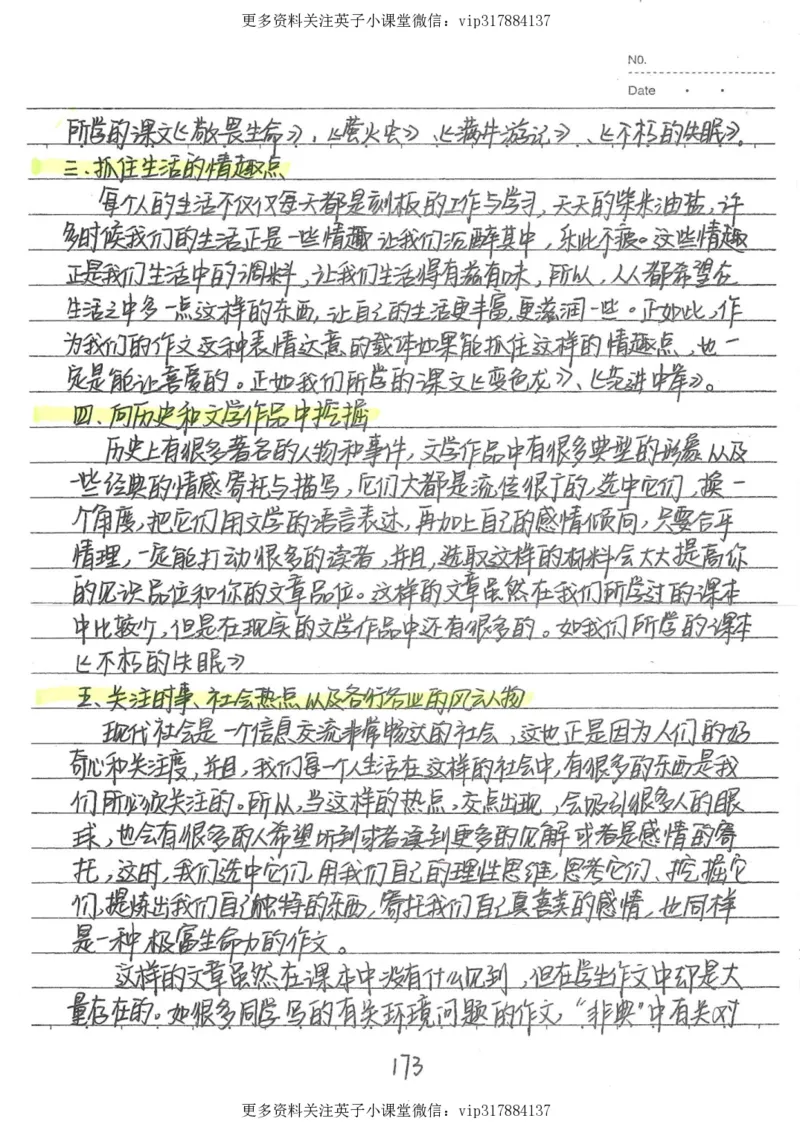 更多资料关注英子小课堂微信：vip317884137
NO.
Date
所学的课文《敬畏生命》，《萤火虫》《蜗牛游记》、《不朽的失眠》。
三、抓住生活的情趣点
每个人的生活不仅仅每天都是刻板的工作与学习，天天的柴米油盐，许
多时候我们的生活正是一些情趣让我们沉醉其中，乐此不疲。这些情趣
正是我们生活中的调料，让我们生活得有滋有味，所以，人人都希望在
生活之中多一点这样的东西，让自己的生活更丰富，更滋润一些。正如此，作
为我们的作文这种表情达意的载体如果能抓住这样的情趣点，也一
定是能让喜爱的。正如我们所学的课文《变色龙》、《范进中举》。
四、向历史和文学作品中挖掘
历史上有很多著名的人物和事件，文学作品中有很多典型的形象以及
一些经典的情感寄托与描写，它们大都是流传很广的，选中它们，换一
个角度，把它们用文学的语言表述，再加上自己的感情倾向，只要合乎
情理，一定能打动很多的读者，并且，选取这样的材料会大大提高你
的见识品位和你的文章品位。这样的文章虽然在我们所学过的课本
中比较少，但是在现实的文学作品中还有很多的。如我们所学的课本
《不朽的失眠》
五、关注时事、社会热点以及各行各业的风云人物
现代社会是一个信息交流非常畅达的社会，这也正是因为人们的好
奇心和关注度，并且，我们每一个人生活在这样的社会中，有很多的东西是我
们所必须关注的。所以，当这样的热点，交点出现，会吸引很多人的眼
球，也会有很多的人希望听到或者读到更多的见解或者是感情的寄
托，这时，我们选中它们，用我们自己的理性思维，思考它们、挖掘它
们，提炼出我们自己独特的东西，寄托我们自己真善美的感情，也同样
是一种极富生命力的作文。
这样的文章虽然在课本中没有什么见到，但在学生作文中却是大
量存在的。如很多同学写的有关环境问题的作文，“非典”中有关对
173
更多资料关注英子小课堂微信：vip317884137